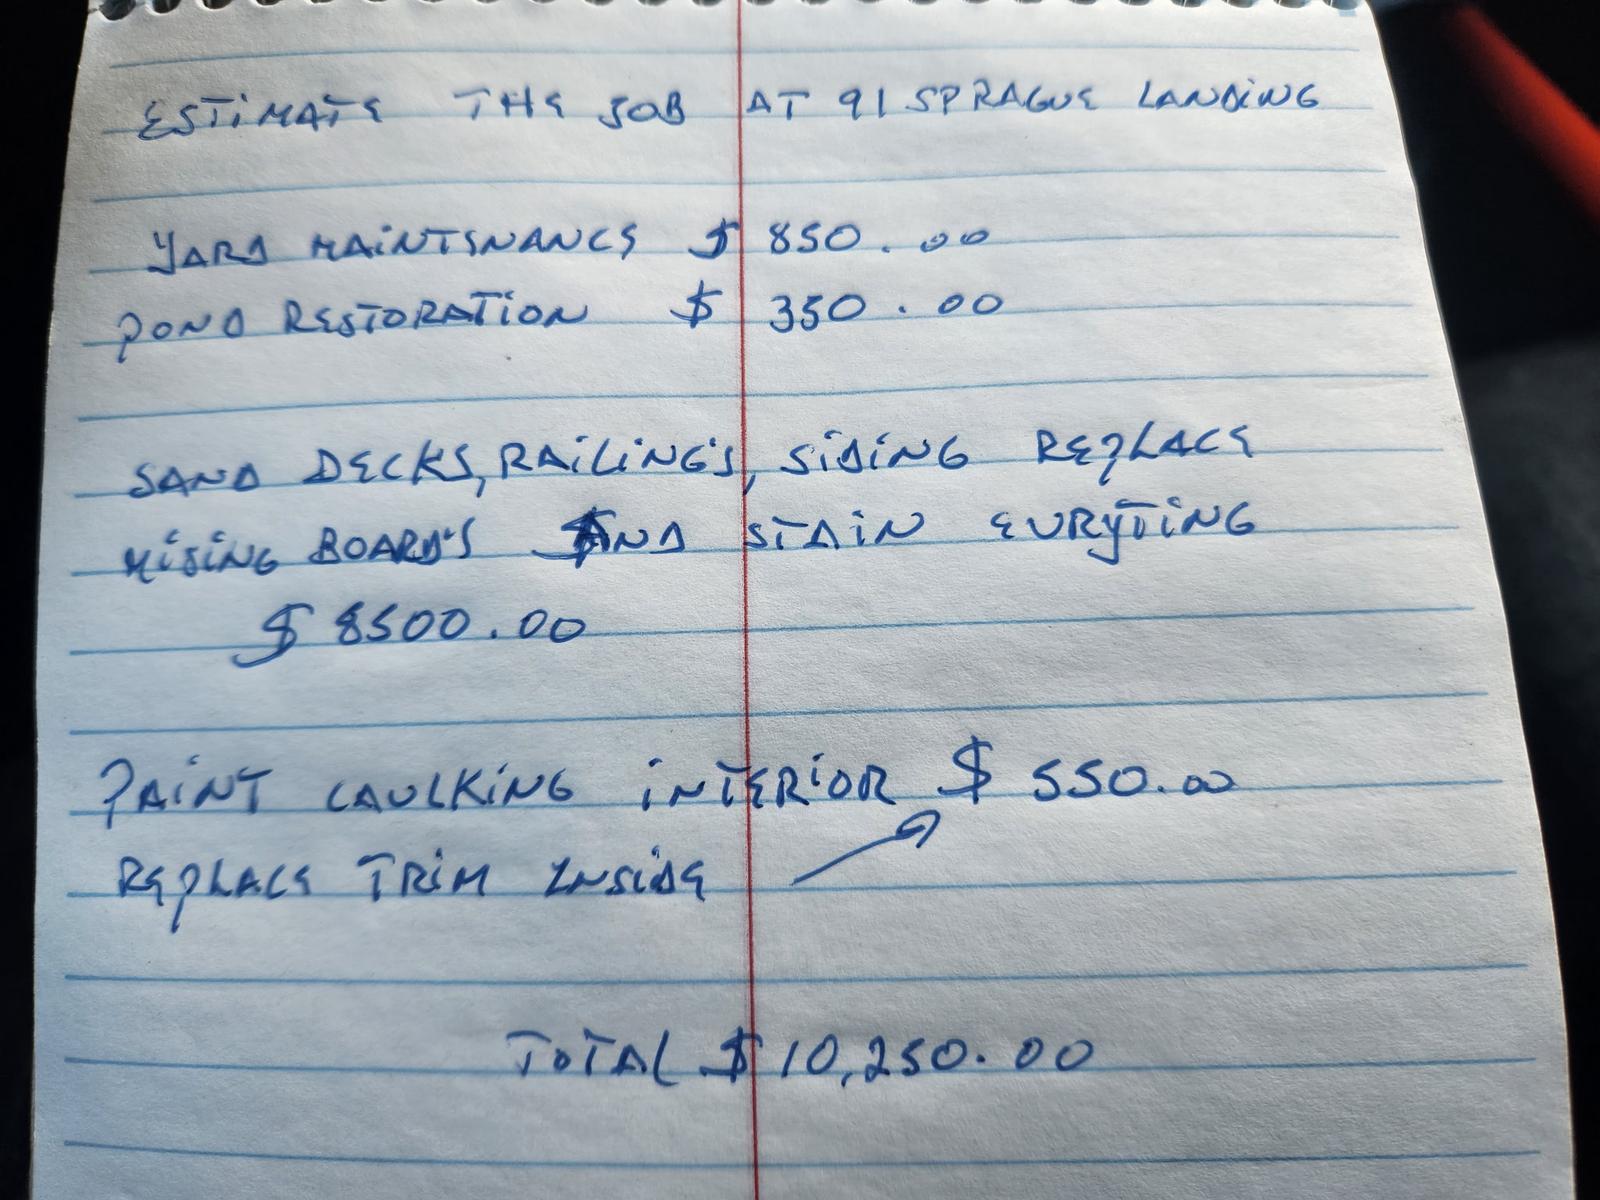 ESTIMATE THE JOB AT 91 SPRAGUE LANDING
YARD MAINTENANCE $ 850.00
POND RESTORATION $ 350.00
SAND DECKS, RAILING'S, SIDING REPLACE
MISING BOARD'S AND STAIN EVRYTING
$ 8500.00
PAINT CAULKING INTERIOR $ 550.00
REPLACE TRIM INSIDE →
TOTAL $ 10,250.00